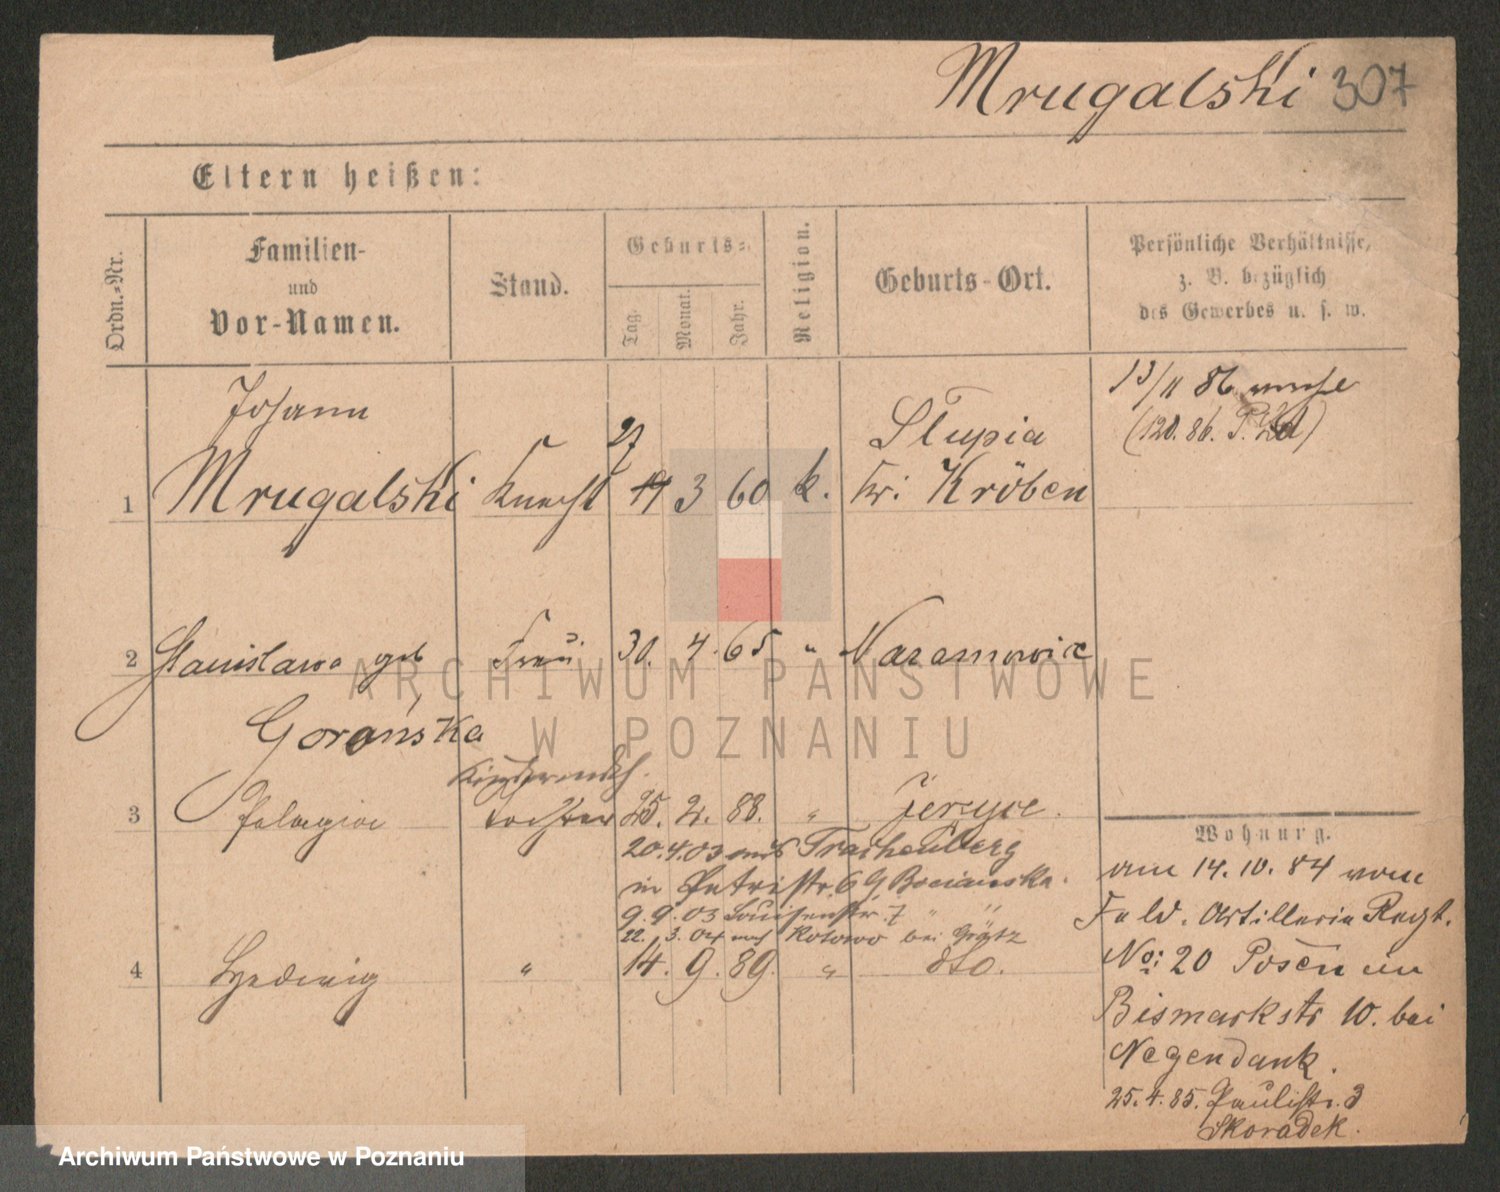 Mrugalski 307
Eltern heißen:
Ordn.-Nr.
Familien-
und
Vor-Namen.
Stand.
Geburts-
Tag.
Monat.
Jahr.
Religion.
Geburts-Ort.
Persönliche Verhältnisse,
z. B. bezüglich
des Gewerbes u. s. w.
13/11 86
(120. 86. P.
Johann
1 Mrugalski Knecht 27 3 60 k. Slupia
Kr: Kröben
2 Stanislawa geb Frau 30. 4. 65 " Naramowic
Gorońska
3 Pelagia Tochter 25. 2. 88. " Jersyce.
20.4.03 aus Trachenberg
in Petristr. 6 G Bocianska.
9.9.03 Louisenstr. 7 " "
22. 3. 04 nach Kotowo bei Grätz
4 Hedwig " 14. 9. 89. " dto.
Wohnung.
am 14. 10. 84 vom
Feld. Artillerie Regt.
No: 20 Posen in
Bismarkstr 10. bei
Negendank.
25. 4. 85. Paulistr. 3
Skoradek.
ARCHIWUM PAŃSTWOWE
W POZNANIU
Archiwum Państwowe w Poznaniu